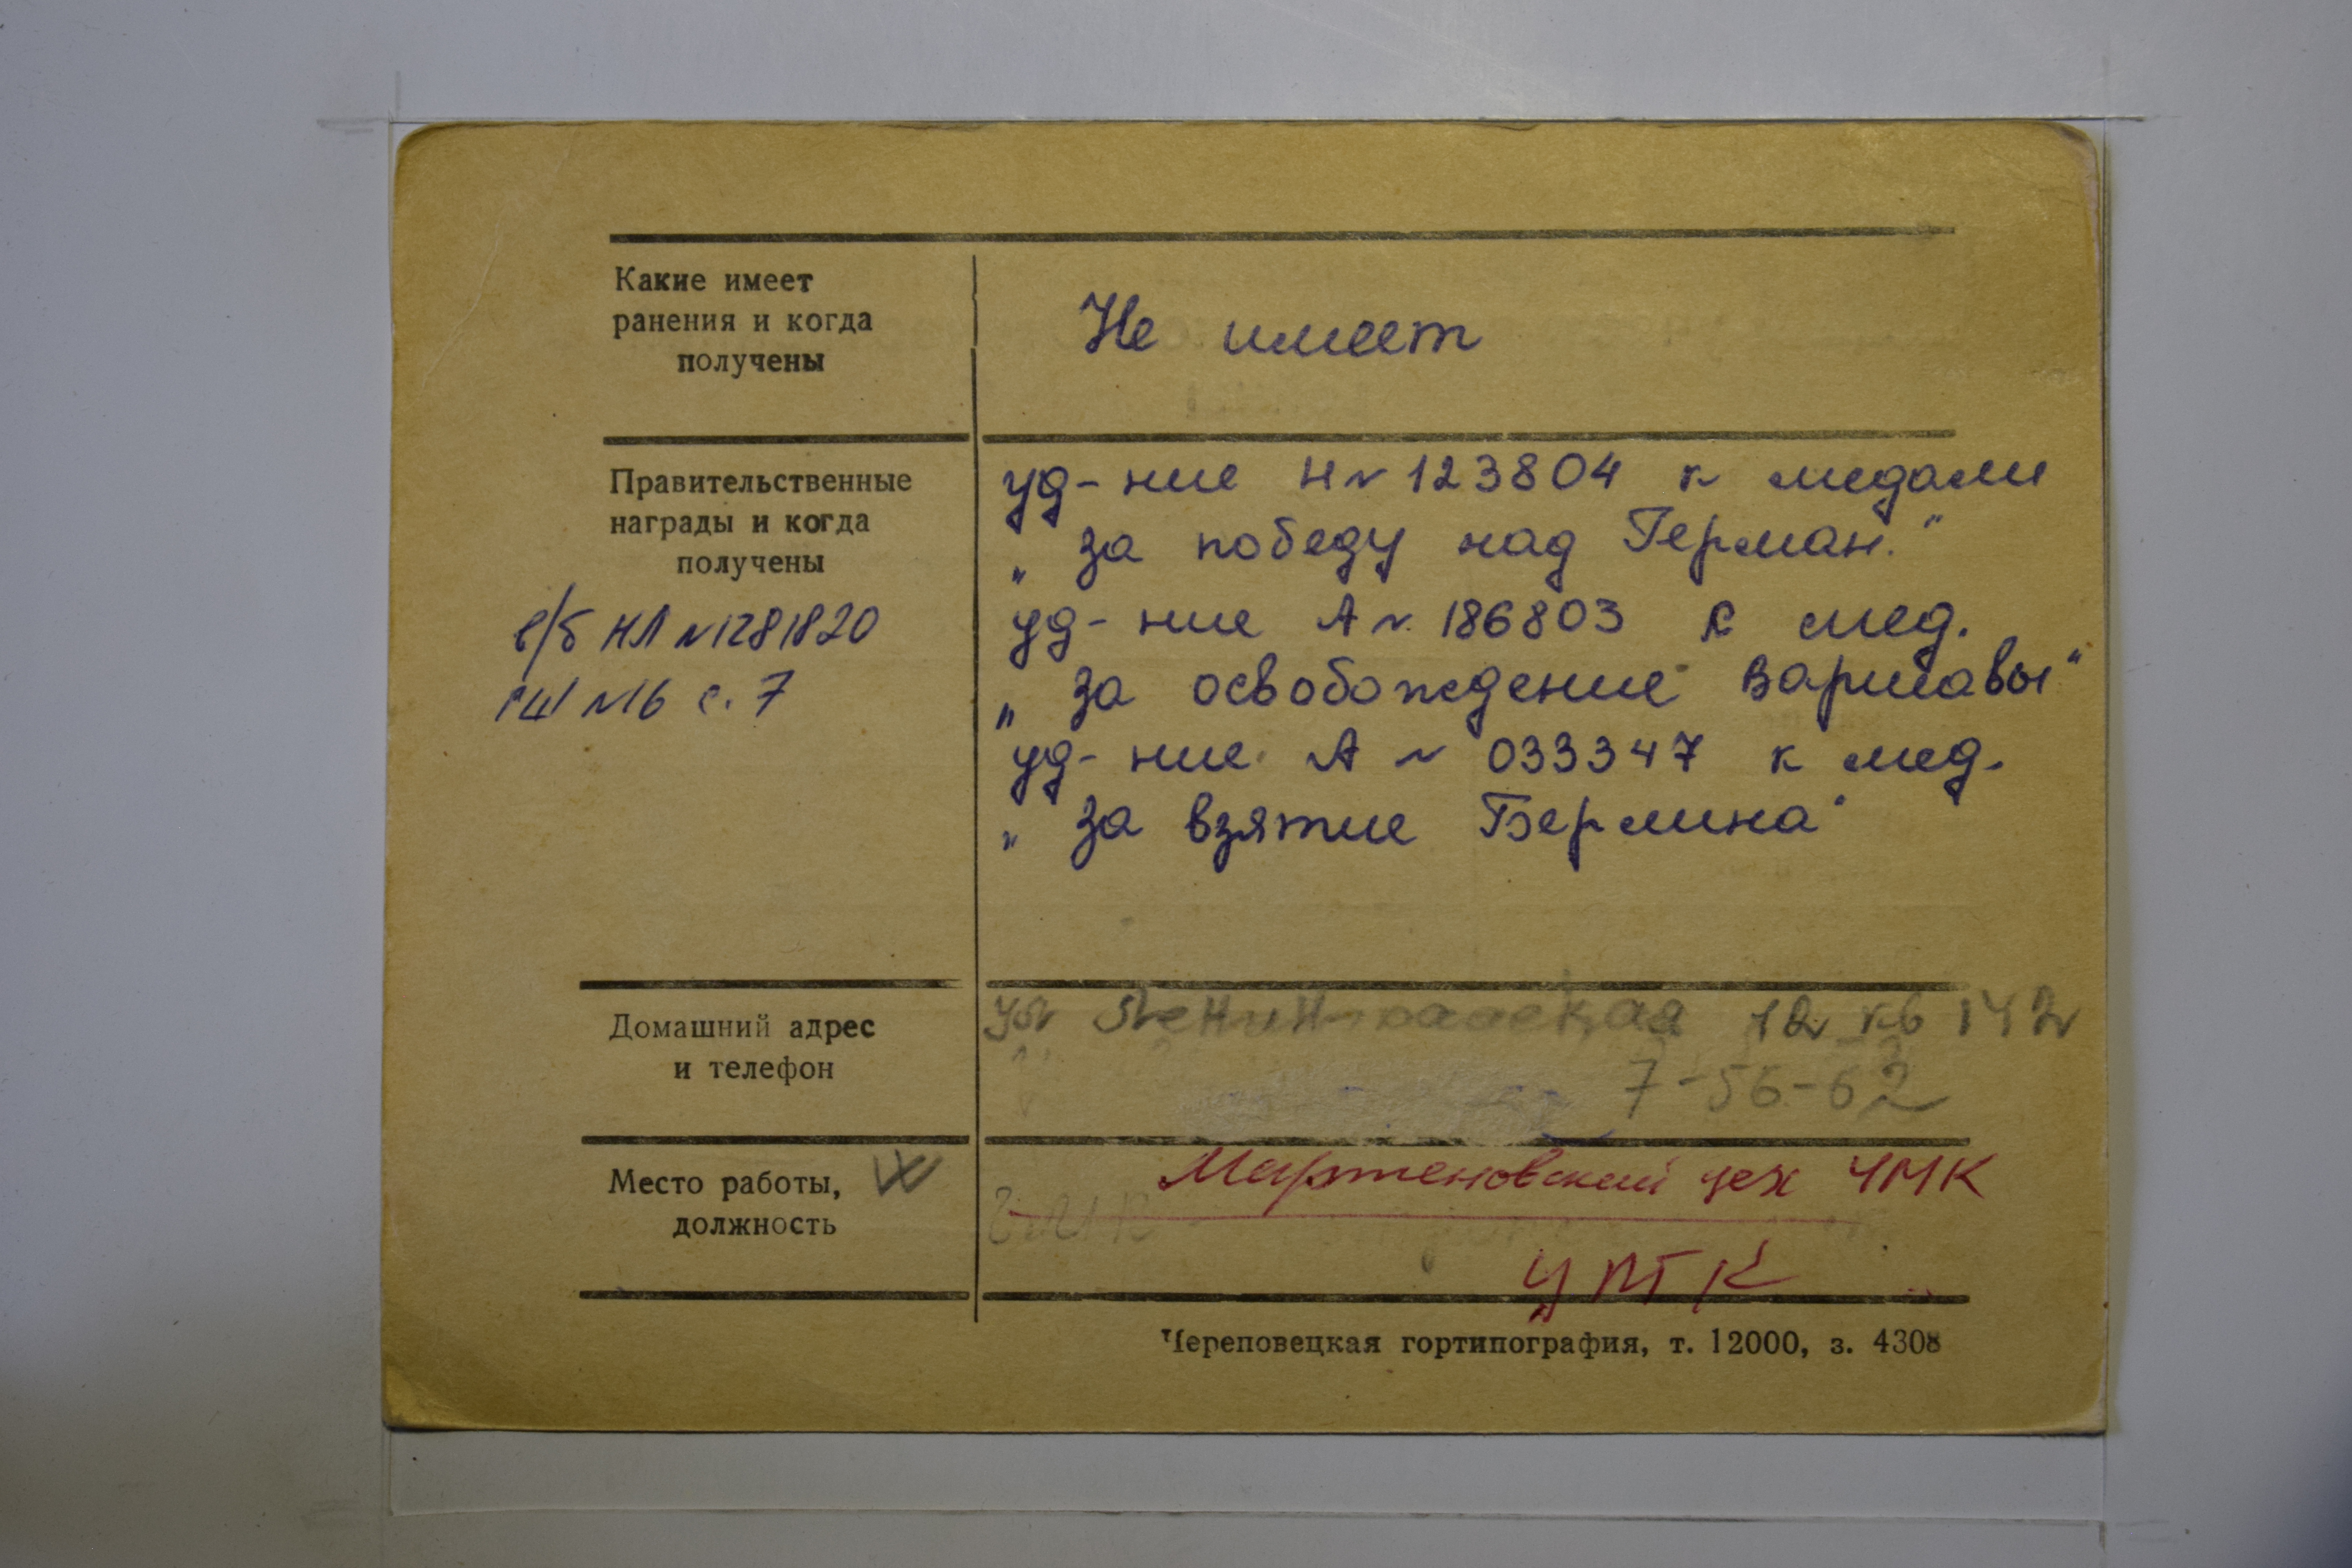 Какие имеет
ранения и когда
получены
Не имеет
Правительственные
награды и когда
получены
в/б НЛ №1281820
№16 с. 7
уд-ние Н № 123804 к медали
„за победу над Герман."
уд-ние А № 186803 к мед.
„за освобождение Варшавы"
уд-ние А № 033347 к мед.
„за взятие Берлина"
Домашний адрес
и телефон
ул Ленинградская 12 кв 142
7-56-62
Место работы,
должность
Мартеновский цех ЧМК
УПТК
Череповецкая гортипография, т. 12000, з. 4308